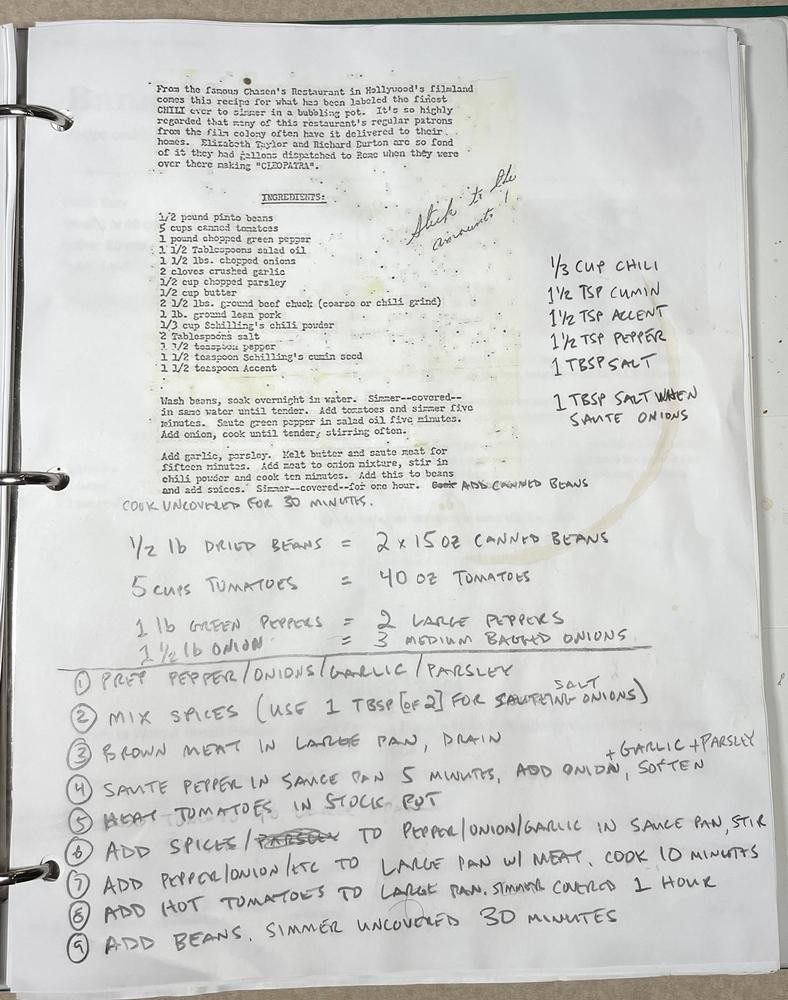 From the famous Chasen's Restaurant in Hollywood's filmland
comes this recipe for what has been labeled the finest
CHILI ever to simmer in a bubbling pot. It's so highly
regarded that many of this restaurant's regular patrons
from the film colony often have it delivered to their
homes. Elizabeth Taylor and Richard Burton are so fond
of it they had gallons dispatched to Rome when they were
over there making "CLEOPATRA".
INGREDIENTS:
Stick to the
amounts!
1/2 pound pinto beans
5 cups canned tomatoes
1 pound chopped green pepper
1 1/2 Tablespoons salad oil
1 1/2 lbs. chopped onions
2 cloves crushed garlic
1/2 cup chopped parsley
1/2 cup butter
2 1/2 lbs. ground beef chuck (coarse or chili grind)
1 lb. ground lean pork
1/3 cup Schilling's chili powder
2 Tablespoons salt
1 1/2 teaspoon pepper
1 1/2 teaspoon Schilling's cumin seed
1 1/2 teaspoon Accent
1/3 CUP CHILI
1 1/2 TSP CUMIN
1 1/2 TSP ACCENT
1 1/2 TSP PEPPER
1 TBSP SALT
1 TBSP SALT WHEN
SAUTE ONIONS
Wash beans, soak overnight in water. Simmer--covered--
in same water until tender. Add tomatoes and simmer five
minutes. Saute green pepper in salad oil five minutes.
Add onion, cook until tender, stirring often.
Add garlic, parsley. Melt butter and saute meat for
fifteen minutes. Add meat to onion mixture, stir in
chili powder and cook ten minutes. Add this to beans
and add spices. Simmer--covered--for one hour. ADD CANNED BEANS
COOK UNCOVERED FOR 30 MINUTES.
1/2 lb DRIED BEANS = 2 x 15 OZ CANNED BEANS
5 CUPS TUMATOES = 40 OZ TOMATOES
1 lb GREEN PEPPERS = 2 LARGE PEPPERS
1 1/2 lb ONION = 3 MEDIUM BAGGED ONIONS
① PREP PEPPER/ONIONS/GARLIC/PARSLEY
② MIX SPICES (USE 1 TBSP [OF 2] SALT FOR SAUTEING ONIONS)
③ BROWN MEAT IN LARGE PAN, DRAIN
④ SAUTE PEPPER IN SAUCE PAN 5 MINUTES, ADD ONION + GARLIC + PARSLEY, SOFTEN
⑤ HEAT TOMATOES IN STOCK POT
⑥ ADD SPICES/PARSLEY TO PEPPER/ONION/GARLIC IN SAUCE PAN, STIR
⑦ ADD PEPPER/ONION/ETC TO LARGE PAN W/ MEAT. COOK 10 MINUTES
⑧ ADD HOT TOMATOES TO LARGE PAN. SIMMER COVERED 1 HOUR
⑨ ADD BEANS. SIMMER UNCOVERED 30 MINUTES